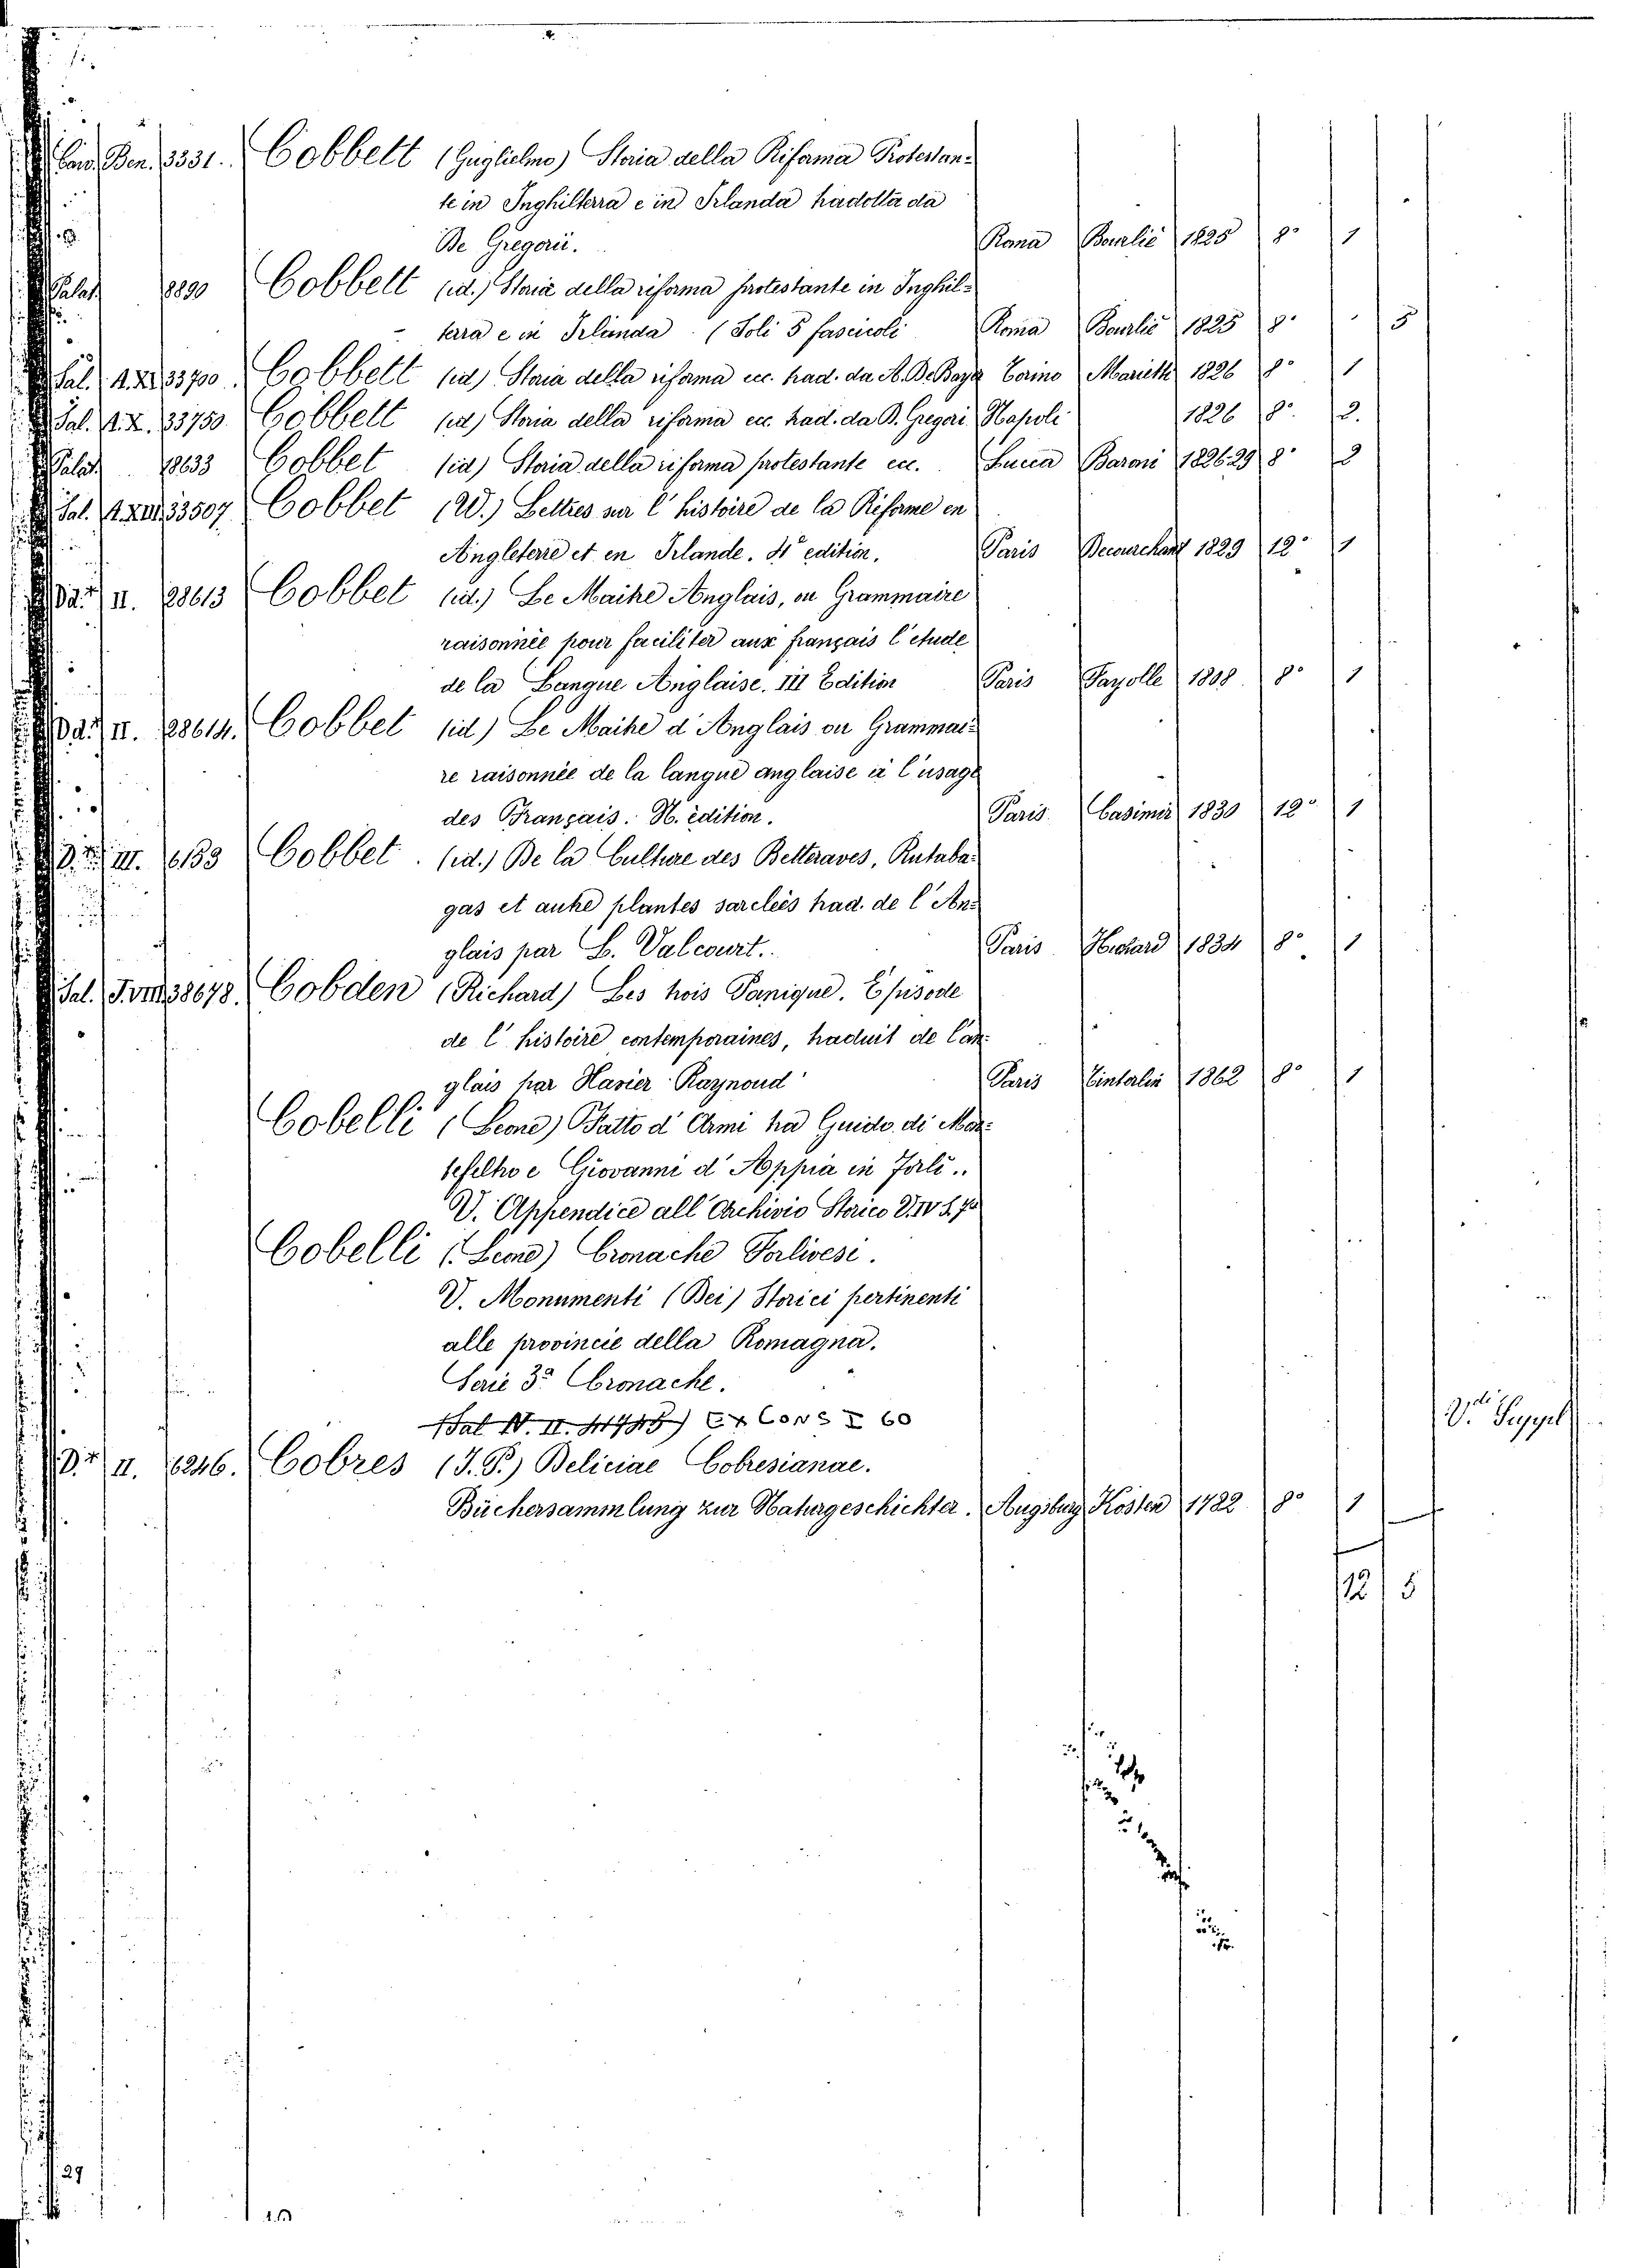 Ben. 3331. Cobbett (Guglielmo) Storia della Riforma Protestan-
te in Inghilterra e in Irlanda tradotta da
De Gregorii. Roma Bourlié 1825 8° 1
Palat. 8890 Cobbett (id.) Storia della riforma protestante in Inghil-
terra e in Irlanda. (Soli 5 fascicoli Roma Bourlié 1825 8° 5
Sal. A.XI. 33700. Cobbett (id) Storia della riforma ecc. trad. da A. De Baye Torino Marietti 1826 8° 1
Sal. A.X. 33750. Cobbett (id) Storia della riforma ecc. trad. da D. Gregori Napoli 1826 8°. 2.
Palat. 18633 Cobbet (id) Storia della riforma protestante ecc. Lucca Baroni 1826.29 8° 2
Sal. A.XIII. 33507 Cobbet (W.) Lettres sur l'histoire de la Réforme en
Angleterre et en Irlande. 4e edition. Paris Decourchant 1829 12° 1
II. 28613 Cobbet (id.) Le Maitre Anglais, ou Grammaire
raisonnée pour faciliter aux français l'étude
de la Langue Anglaise. III Edition Paris Fayolle 1808. 8° 1
II. 28614. Cobbet (id) Le Maitre d'Anglais ou Grammai-
re raisonnée de la langue anglaise à l'usage
des Français. N. édition. Paris Casimir 1830 12° 1
III. 6133 Cobbet. (id.) De la Culture des Betteraves, Rutaba-
gas et autre plantes sarclées trad. de l'An-
glais par L. Valcourt. Paris Huzard 1834 8° 1
Sal. T.VIII. 38678. Cobden (Richard) Les trois Panique. Episode
de l'histoire contemporaines, traduit de l'an-
glais par Xavier Raymond Paris 1862 8° 1
Cobelli (Leone) Fatto d'Armi tra Guido di Mon-
tefeltro e Giovanni d'Appia in Forlì.
V. Appendice all'Archivio Storico V. IV
Cobelli (Leone) Cronache Forlivesi.
V. Monumenti (Dei) Storici pertinenti
alle provincie della Romagna.
Serie 3a Cronache.
EX CONS I 60
V.di Suppl
II. 6246. Cobres (J. P.) Deliciae Cobresianae.
Büchersammlung zur Naturgeschichter. Augsburg Kosten 1782 8° 1
12 5